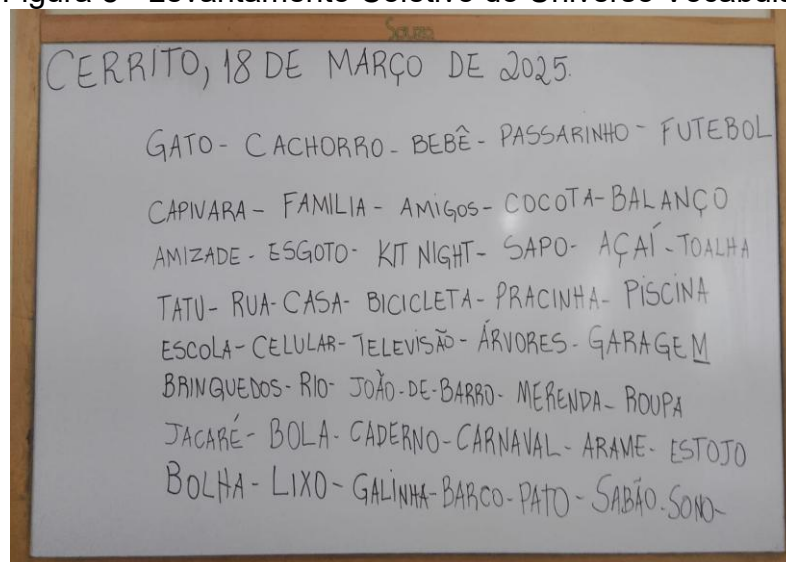 Souza
CERRITO, 18 DE MARÇO DE 2025.
GATO - CACHORRO - BEBÊ - PASSARINHO - FUTEBOL
CAPIVARA - FAMILIA - AMIGOS - COCOTA - BALANÇO
AMIZADE - ESGOTO - KIT NIGHT - SAPO - AÇAÍ - TOALHA
TATU - RUA - CASA - BICICLETA - PRACINHA - PISCINA
ESCOLA - CELULAR - TELEVISÃO - ÁRVORES - GARAGEM
BRINQUEDOS - RIO - JOÃO-DE-BARRO - MERENDA - ROUPA
JACARÉ - BOLA - CADERNO - CARNAVAL - ARAME - ESTOJO
BOLHA - LIXO - GALINHA - BARCO - PATO - SABÃO - SONO -